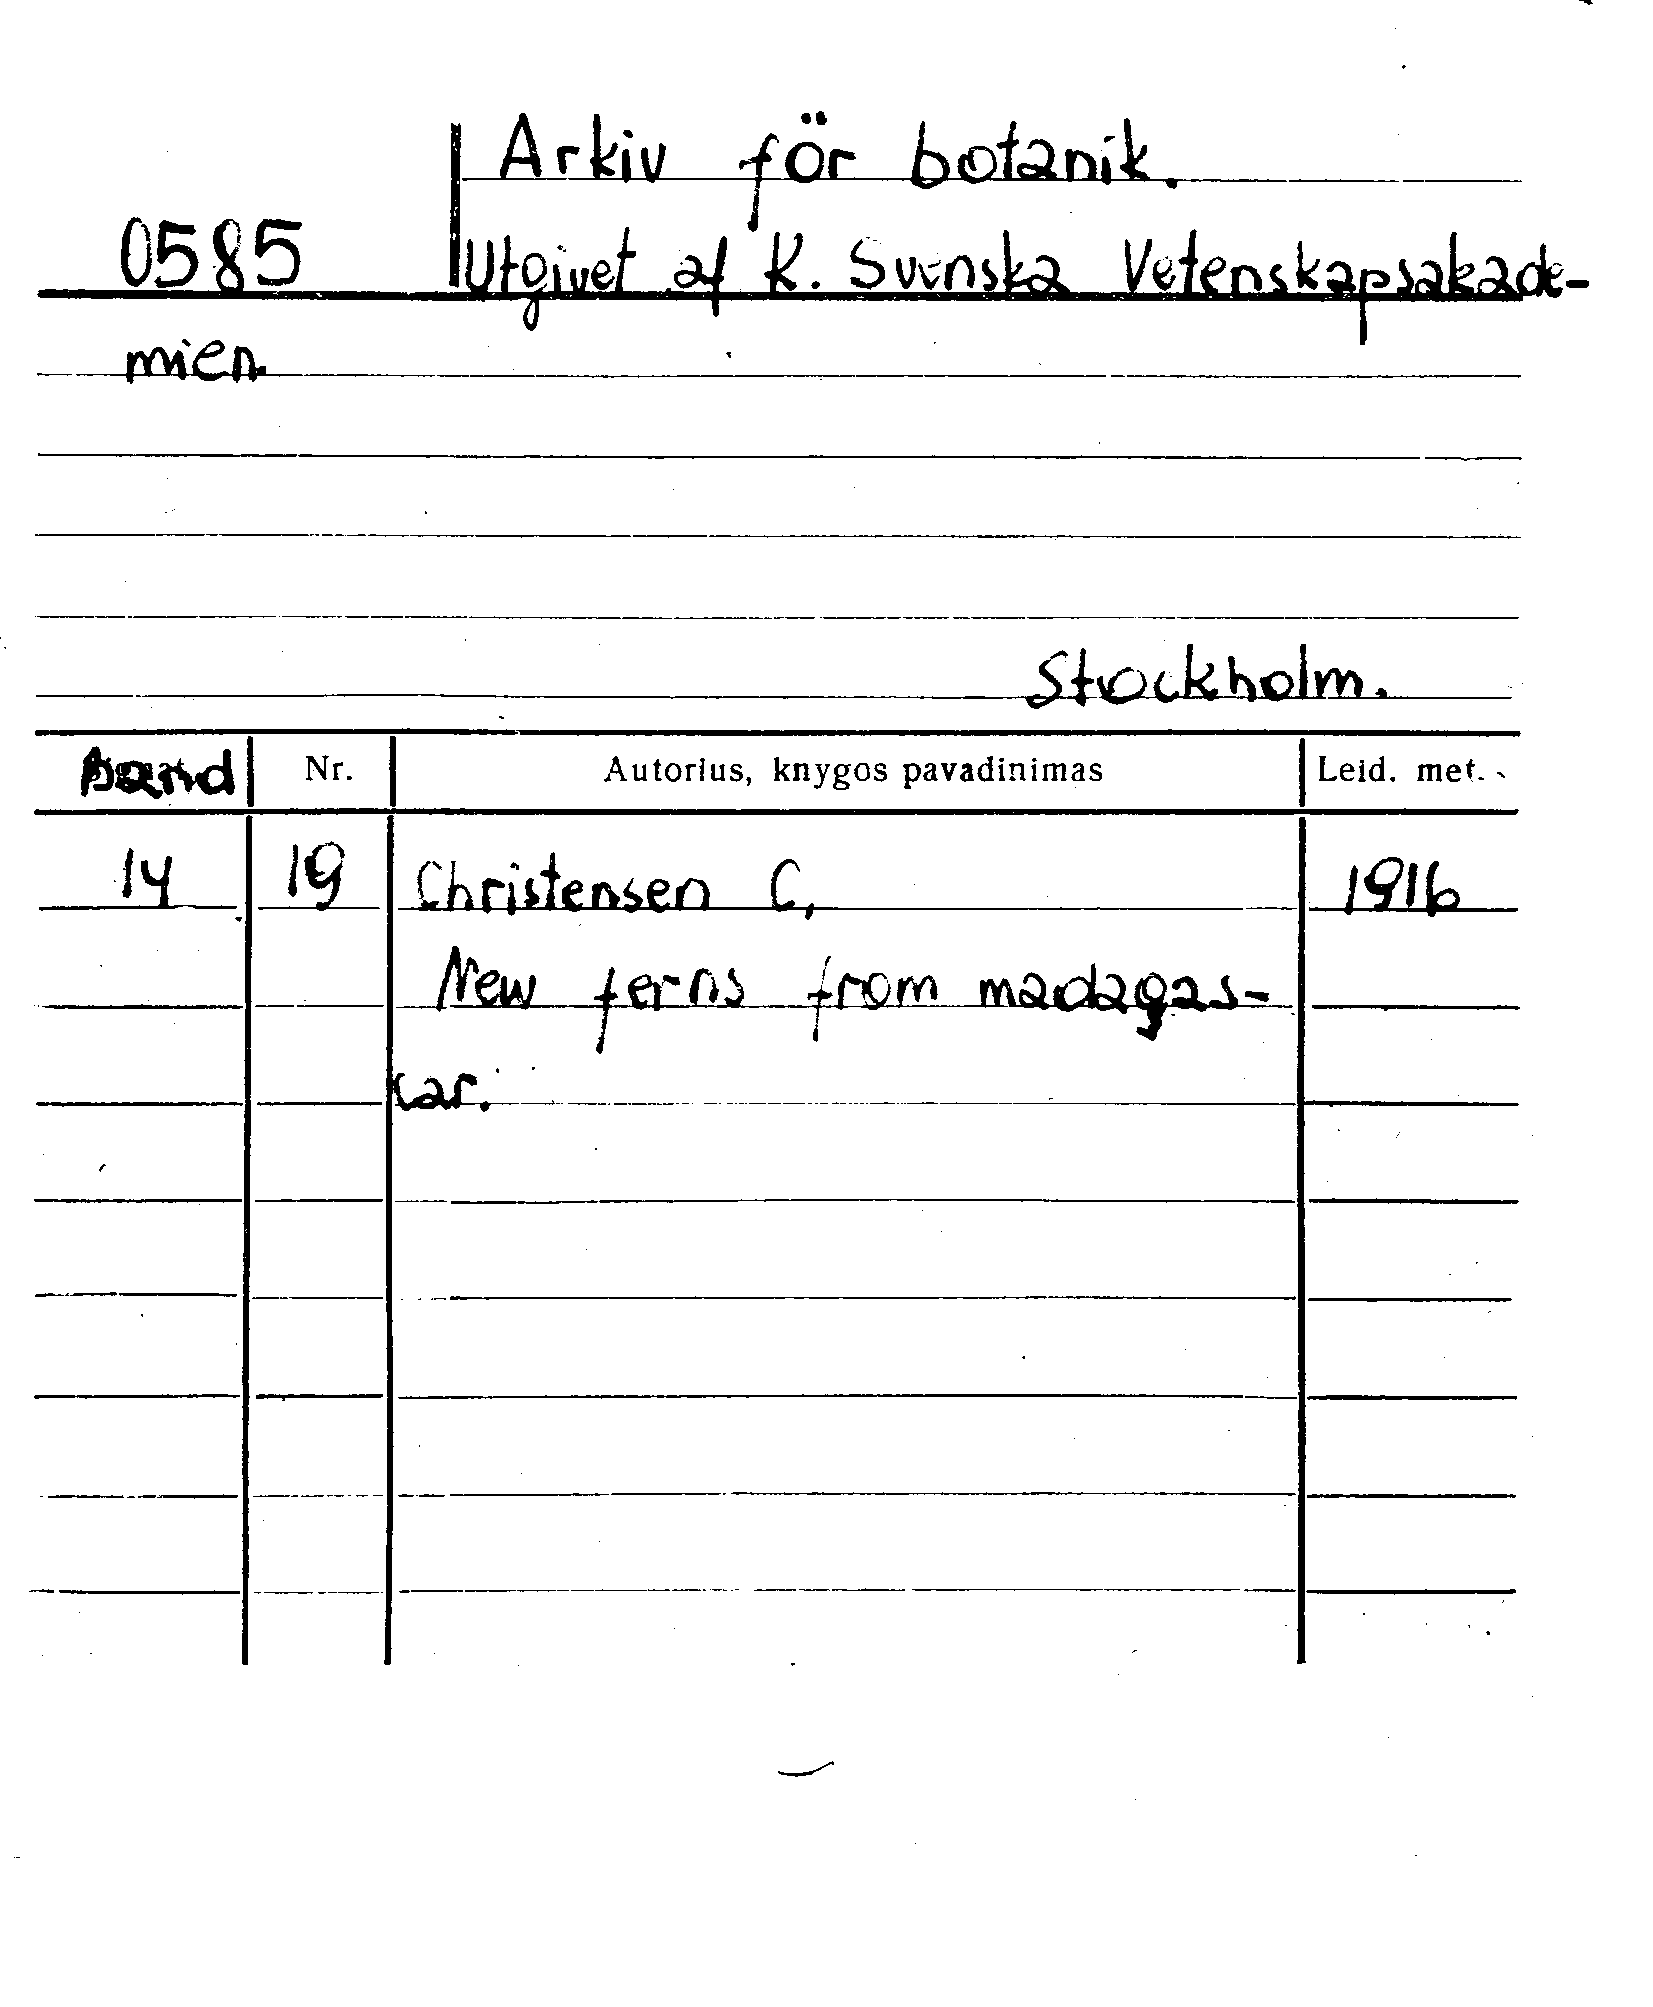 Arkiv för botanik.
0585 Utgivet af K. Svenska Vetenskapsakade-
mien.
Stockholm.
Band Nr. Autorius, knygos pavadinimas Leid. met.
14 19 Christensen C, 1916
New ferns from madagas-
car.